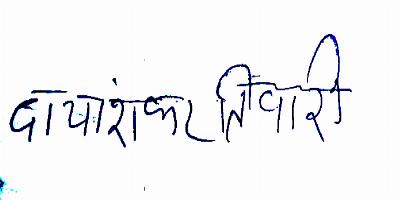 दायाशंकर तिवारी